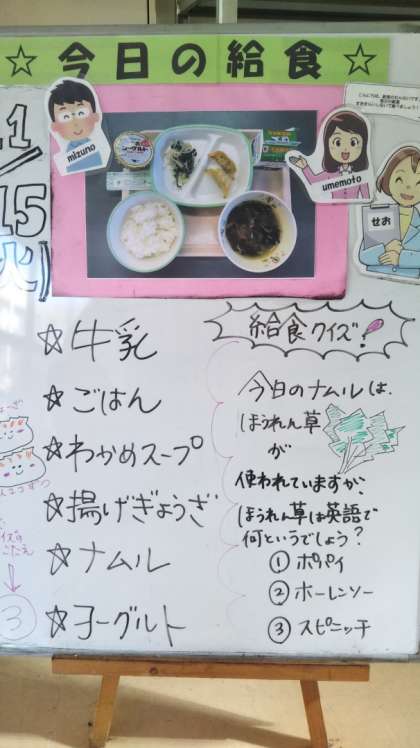 ☆ 今日の給食 ☆
11/
15
(火)
mizuno
umemoto
せお
☆牛乳
☆ごはん
☆わかめスープ
☆揚げぎょうざ
☆ナムル
☆ヨーグルト
給食クイズ!
今日のナムルは、
ほうれん草
が
使われていますが、
ほうれん草は英語で
何というでしょう?
①ポパイ
②ホーレンソー
③スピニッチ
こたえ
↓
③